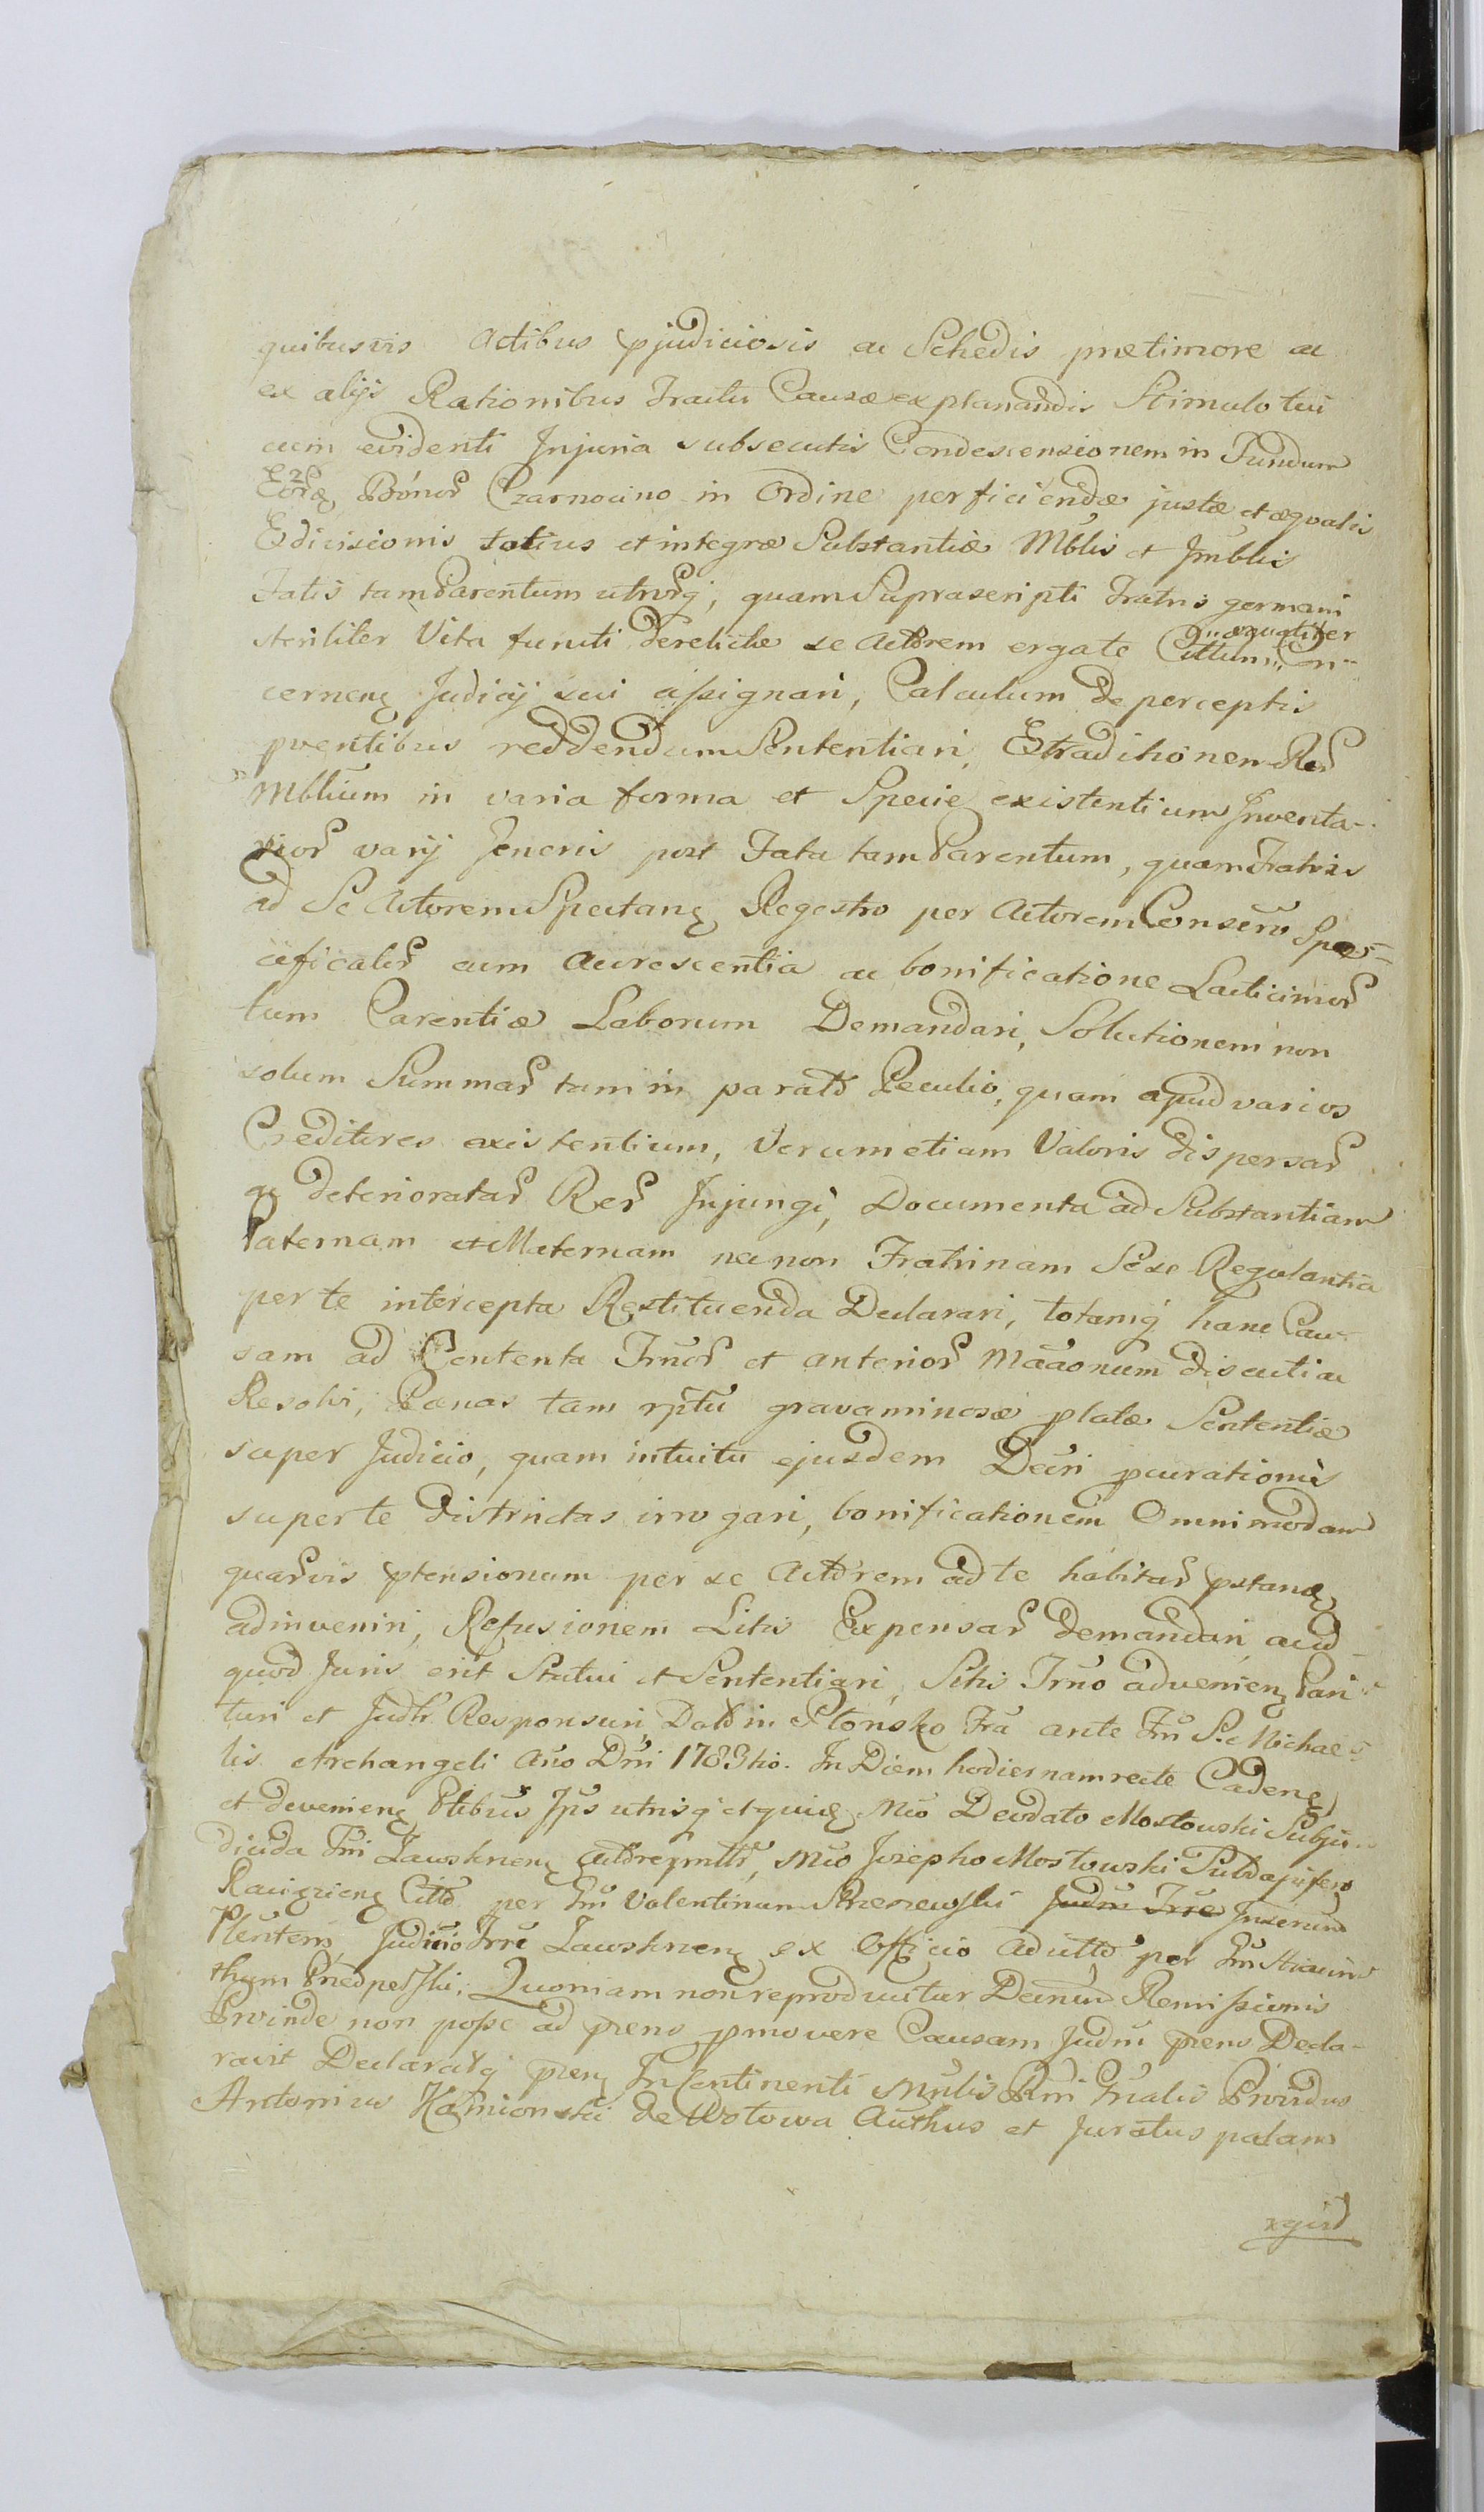 quibusvis Actibus pjudiciosis ac Schedis prætimore ac
ex alijs Rationibus Tractu Causæ explanandis Stimulo tui
cum evidenti Injuria subsecutis Condescensionem in Fundum
Bonor Czarnocino in Ordine perficiendæ justæ et æqualis
Edivisionis totius et integræ Substantiæ Mblis et Jmblis
Fatis tam Parentum utrorq, quam Suprascripti Fratris germani
steriliter Vita functi derelictæ se Actorem ergate Cittum æqualiter Con-
cernen Judicij sui assignari, Calculum de perceptis
pventibus reddendum Sententiari, Extraditionem Rer
Mblium in varia forma et Specie existentium Inventa-
rior varij Generis post Fata tam Parentum, quam Fratris
ad Se Actorem Spectan Regestro per Actorem Conserv Spe-
cificatur cum Accrescentia ac bonificatione Lacticinior
tum Carentiæ Laborum Demandari, Solutionem non
solum Summar tam in parato Peculio, quam apud varios
Creditores existentium, Verum etiam Valoris dispersar
ac deterioratar Rer Injungi, Documenta ad Substantiam
Paternam et Maternam nec non Fratrinam Sese Regulantia
per te intercepta Restituenda Declarari, totamq hanc Cau-
sam ad Contenta Trnor et anterior Maaonum discuti ac
Resolvi, Pænas tam rptu gravaminosæ platæ Sententiæ
super Judicio, quam intuitu ejusdem Decri pcurationis
super te districtas irrogari, bonificationem Omnimodam
quarvis ptensionum per se Actorem ad te habitar pstan
adinveniri, Refusionem Litis Expensar demandari, acid
quod Juris erit Statui et Sententiari, Sitis Trno advenien Pari-
turi et Judtr Responsuri, Datt in Płonsko Fra ante Fm S. Michae-
lis Archangeli Ano Dni 1783tio. In Diem hodiernam recte Caden
et devenien Ptibus Jps utrisq et quid Mco Deodato Mostowski Subju-
dicida Trri Zawskrnen Actore pmttr, Mco Josepho Mostowski Subdapifero
Racigzien Citto per Gm Valentinum Strzeszewski Judm Trre Inserum
Plentem Judicio Trri Zawskrnen ex Officio aduttd per Gm Hiacin-
thum Przedpełski; Quoniam non reproducitur Decrum Remissionis
Proinde non posse ad prens pmovere Causam Judm prens Decla-
ravit Declaratq pren In Continenti Mnlis Rndi Trnalis Prvidus
Antonius Kamionski de Wotowa Authus et Juratus palam